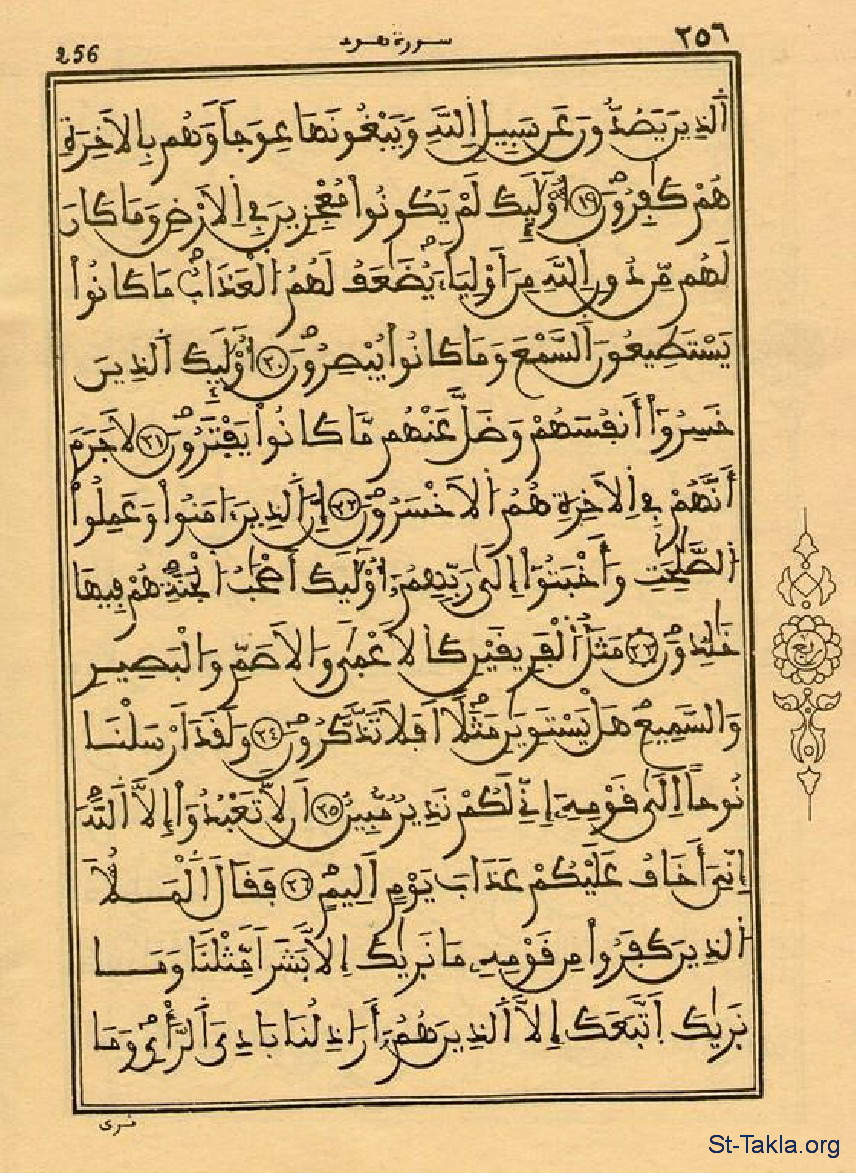 256 سورة هود ٢٥٦
اَ۬لذِينَ يَصُدُّونَ عَن سَبِيلِ اِ۬للَّهِ وَيَبْغُونَهَا عِوَجاٗ وَهُم بِالَاخِرَةِ
هُمْ كَٰفِرُونَۖ ١٩ أُوْلَٰٓئِكَ لَمْ يَكُونُواْ مُعْجِزِينَ فِے اِ۬لَارْضِ وَمَا كَانَ
لَهُم مِّن دُونِ اِ۬للَّهِ مِنَ اَوْلِيَآءَۖ يُضَٰعَفُ لَهُمُ اُ۬لْعَذَابُۖ مَا كَانُواْ
يَسْتَطِيعُونَ اَ۬لسَّمْعَ وَمَا كَانُواْ يُبْصِرُونَۖ ٢٠ أُوْلَٰٓئِكَ اَ۬لذِينَ
خَسِرُوٓاْ أَنفُسَهُمْ وَضَلَّ عَنْهُم مَّا كَانُواْ يَفْتَرُونَۖ ٢١ لَا جَرَمَ
أَنَّهُمْ فِے اِ۬لَاخِرَةِ هُمُ اُ۬لَاخْسَرُونَۖ ٢٢ إِنَّ اَ۬لذِينَ ءَامَنُواْ وَعَمِلُواْ
اُ۬لصَّٰلِحَٰتِ وَأَخْبَتُوٓاْ إِلَىٰ رَبِّهِمُۥٓ أُوْلَٰٓئِكَ أَصْحَٰبُ اُ۬لْجَنَّةِ هُمْ فِيهَا
خَٰلِدُونَۖ ٢٣ مَثَلُ اُ۬لْفَرِيقَيْنِ كَالَاعْمَىٰ وَالَاصَمِّ وَالْبَصِيرِ
وَالسَّمِيعِۖ هَلْ يَسْتَوِيَٰنِ مَثَلاًۖ اَفَلَا تَذَّكَّرُونَۖ ٢٤ وَلَقَدَ اَرْسَلْنَا
نُوحاً اِلَىٰ قَوْمِهِۦٓ إِنِّے لَكُمْ نَذِيرٞ مُّبِينٌ ٢٥ اَن لَّا تَعْبُدُوٓاْ إِلَّا اَ۬للَّهَۖ
إِنِّيَ أَخَافُ عَلَيْكُمْ عَذَابَ يَوْمٍ اَلِيمٖۖ ٢٦ فَقَالَ اَ۬لْمَلَأُ
اُ۬لذِينَ كَفَرُواْ مِن قَوْمِهِۦ مَا نَرَىٰكَ إِلَّا بَشَراٗ مِّثْلَنَا وَمَا
نَرَىٰكَ اَ۪تَّبَعَكَ إِلَّا اَ۬لذِينَ هُمُۥٓ أَرَاذِلُنَا بَادِيَ اَ۬لرَّأْيِۖ وَمَا
نرى
St-Takla.org